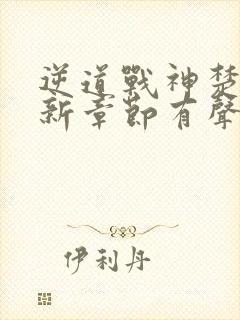 逆道戰神楚
新章節有聲
伊利丹